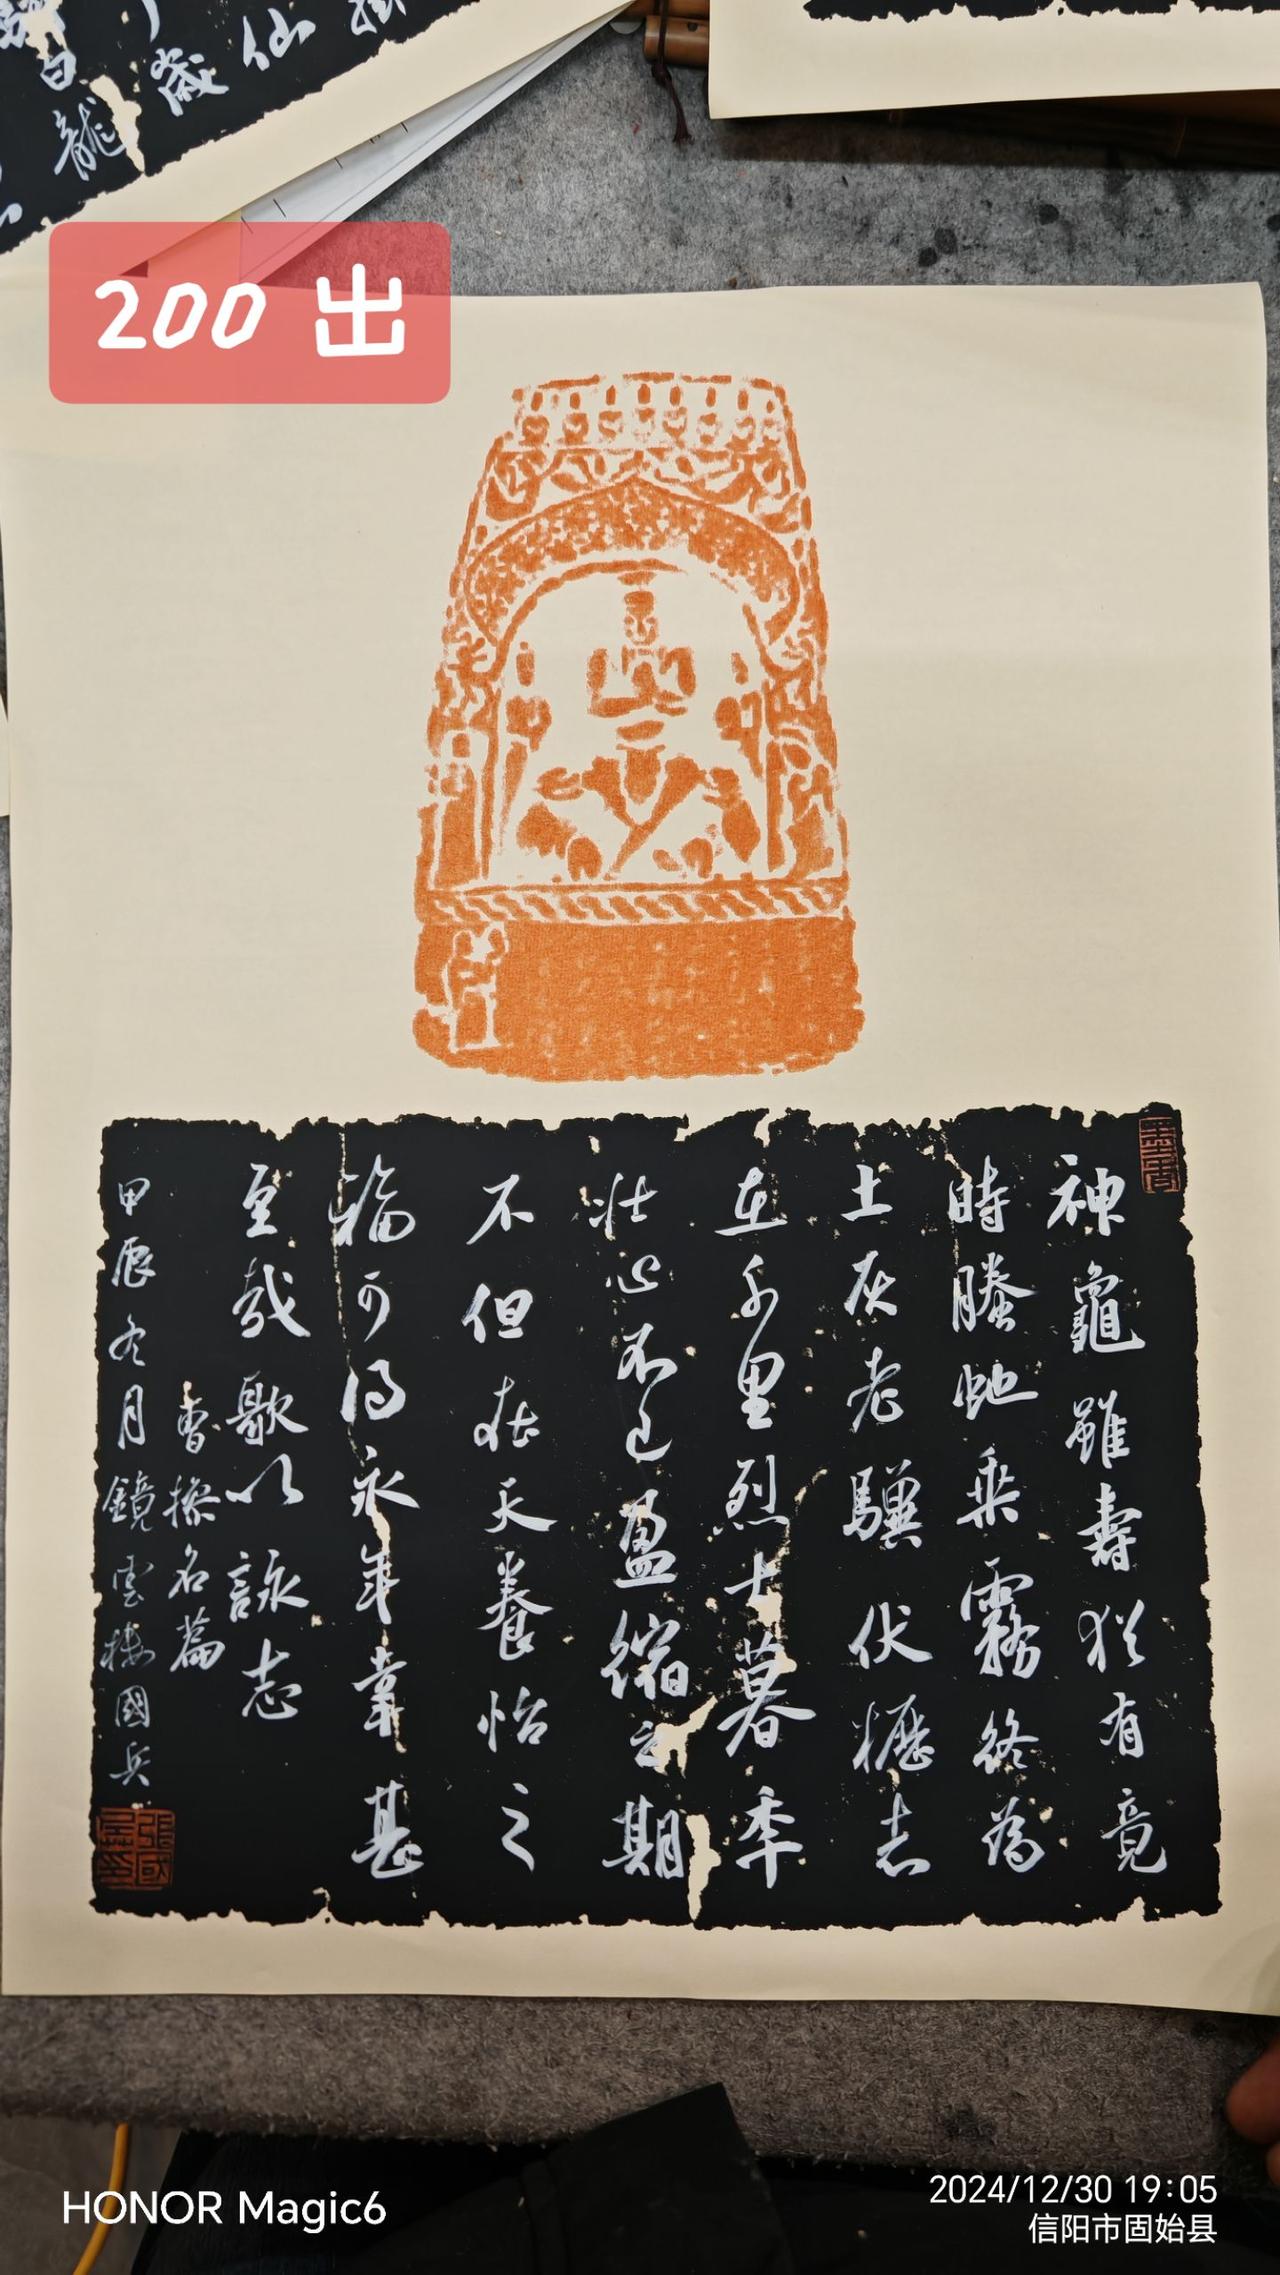 200 出
仙
歲
白龍
神龜雖壽猶有竟
時螣虵乘霧終為
土灰老驥伏櫪志
在千里烈士暮秊
壯心不已盈縮之期
不但在天養怡之
福可得永年幸甚
至哉歌以詠志
曹操名篇
甲辰冬月鏡雲樓國兵
HONOR Magic6
2024/12/30 19:05
信阳市固始县